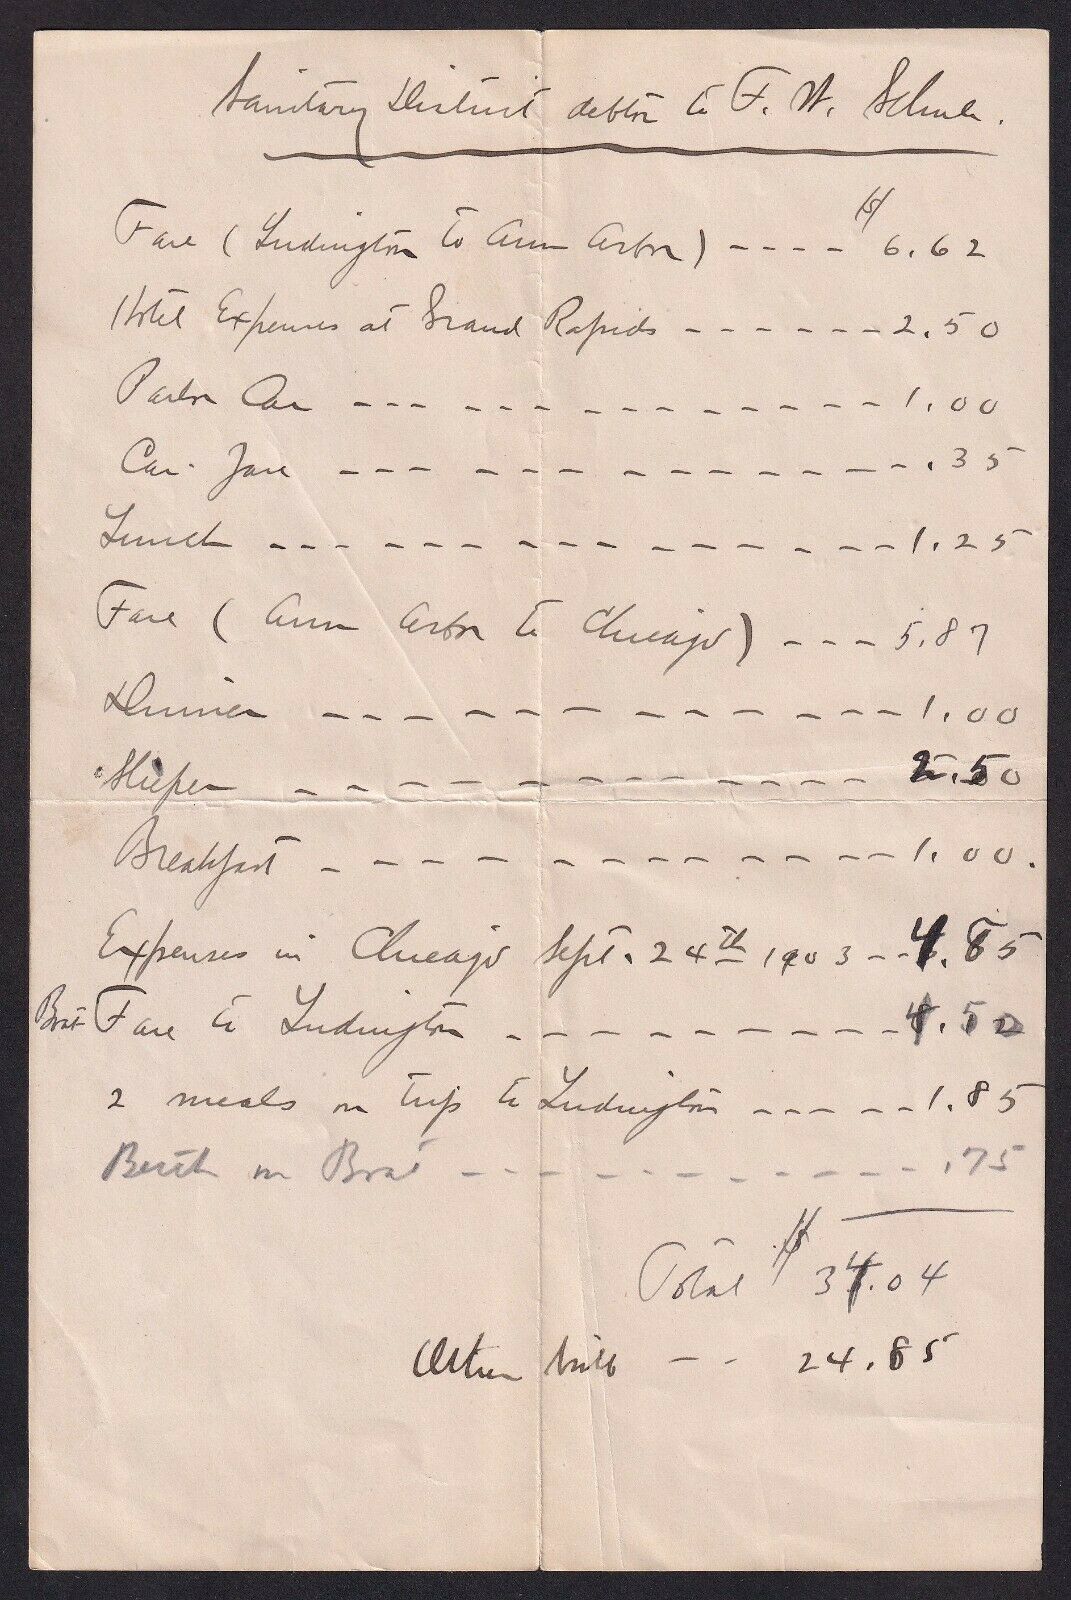 Sanitary District debtor to F. W. Schule.
Fare (Ludington to Ann Arbor) ---- $ 6.62
Hotel Expenses at Grand Rapids ------ 2.50
Parlor Car --- -- -- -- -- -- -- 1.00
Car-fare --- -- -- -- -- -- -- .35
Lunch --- -- -- -- -- -- -- -- 1.25
Fare (Ann Arbor to Chicago) --- 5.87
Dinner -- -- -- -- -- -- -- -- 1.00
Sleeper -- -- -- -- -- -- -- -- 2.50
Breakfast -- -- -- -- -- -- -- 1.00.
Expenses in Chicago Sept. 24th 1903 -- 4.85
Boat Fare to Ludington ----------- 4.50
2 meals on trip to Ludington ----- 1.85
Berth on Boat ----------- .75
Total $ 34.04
Other bill -- 24.85